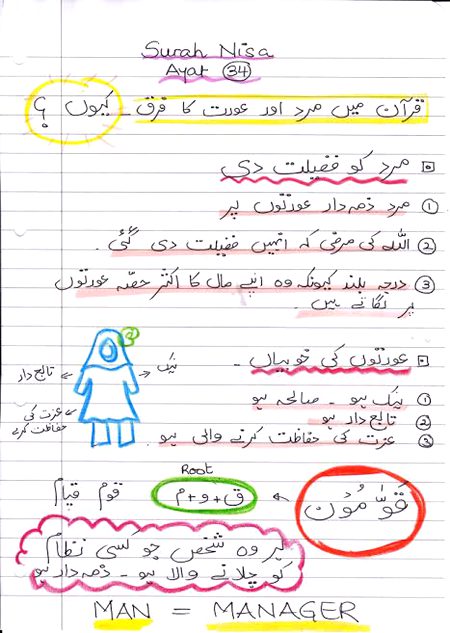 Surah Nisa
Ayat 34
قرآن میں مرد اور عورت کا فرق - کیوں ؟
مرد کو فضیلت دی
① مرد ذمہ دار عورتوں پر
② اللہ کی مرضی کہ انہیں فضیلت دی گئی .
③ درجہ بلند کیونکہ وہ اپنے مال کا اکثر حصّہ عورتوں
پر لگاتے ہیں .
عورتوں کی خوبیاں -
نیک
تابع دار
عزت کی
حفاظت کرنے
① نیک ہو - صالحہ ہو
② تابع دار ہو
③ عزت کی حفاظت کرنے والی ہو .
Root
قَوّٰمُوْن ← ق + و + م قوم قیام
ہر وہ شخص جو کسی نظام
کو چلانے والا ہو - ذمہ دار ہو
MAN = MANAGER